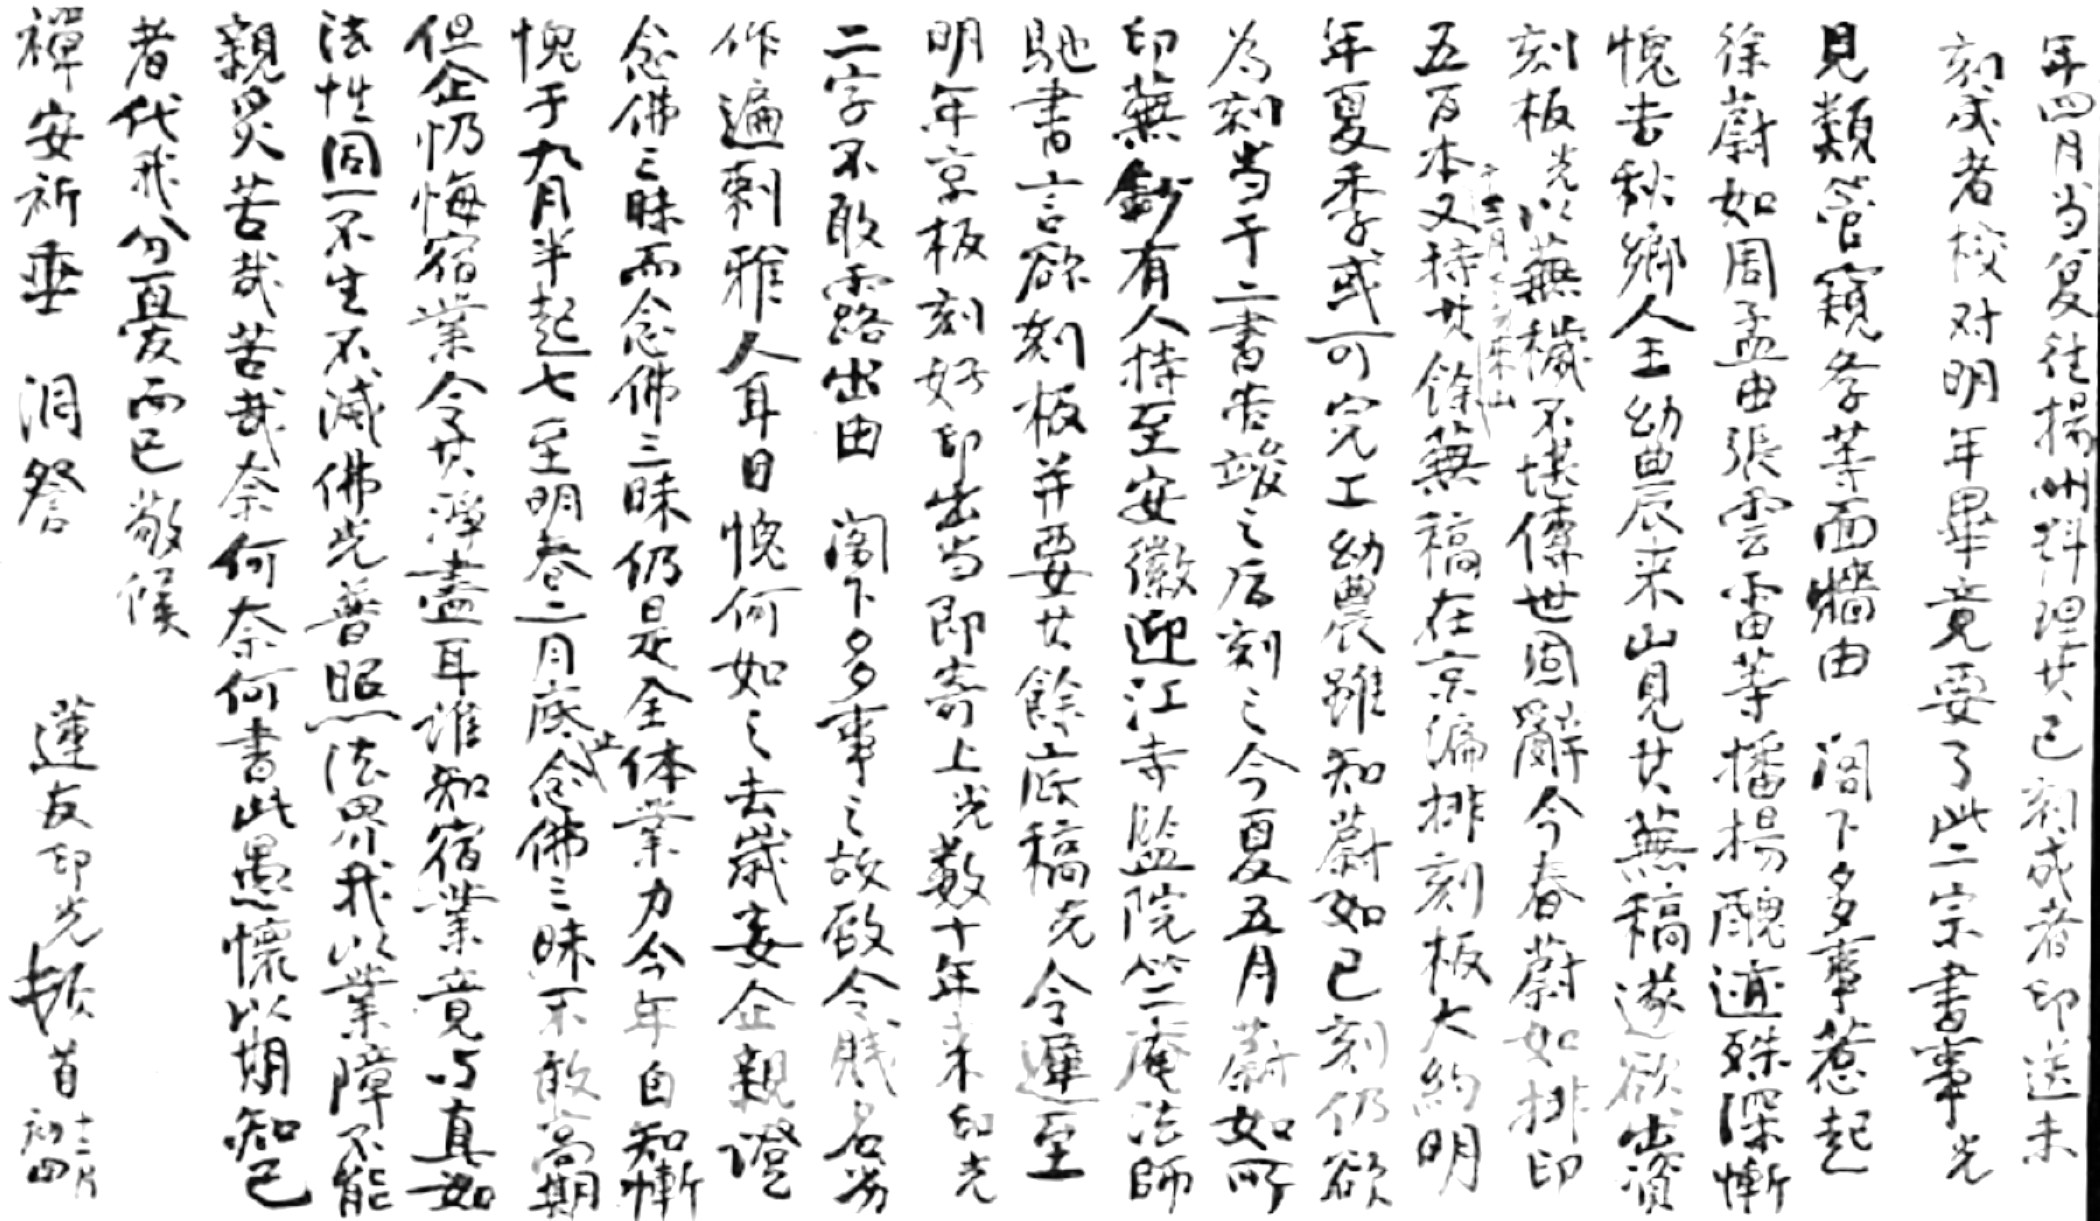 年四月当复往揚州料理其已刻成者印送未
刻成者校对明年畢竟要了此二宗書事光
見類管窺學等面牆由 閣下多事惹起
徐蔚如周孟由張雲雷等播揚醜迹殊深慚
愧去秋鄉人王幼農來山見其蕪稿遂欲出資
刻板光以蕪穢不堪傳世固辭今春蔚如排印
五百本又持其餘蕪稿在京编排刻板大約明
年夏季或可完工幼農雖知蔚如已刻仍欲
為刻当于二書告竣之后刻之今夏五月蔚如所
印蕪鈔有人持至安徽迎江寺監院竺庵法師
馳書言欲刻板并要其餘底稿光令遲至
明年京板刻好印出当即寄上光数十年来印光
二字不敢露出由 閣下多事之故致令賤名劣
作遍刺雅人耳目愧何如之去歲妄企親證
念佛三昧而念佛三昧仍是全体業力今年自知慚
愧于九月半起七至明春二月底止念佛三昧不敢高期
但企忏悔宿業令其淨盡耳誰知宿業竟与真如
法性同一不生不滅佛光普照法界我以業障不能
親炙苦哉苦哉奈何奈何書此愚懷以期知己
者代我分憂而已敬候
禪安祈垂 洞詧
蓮友印光頓首 十二月初四